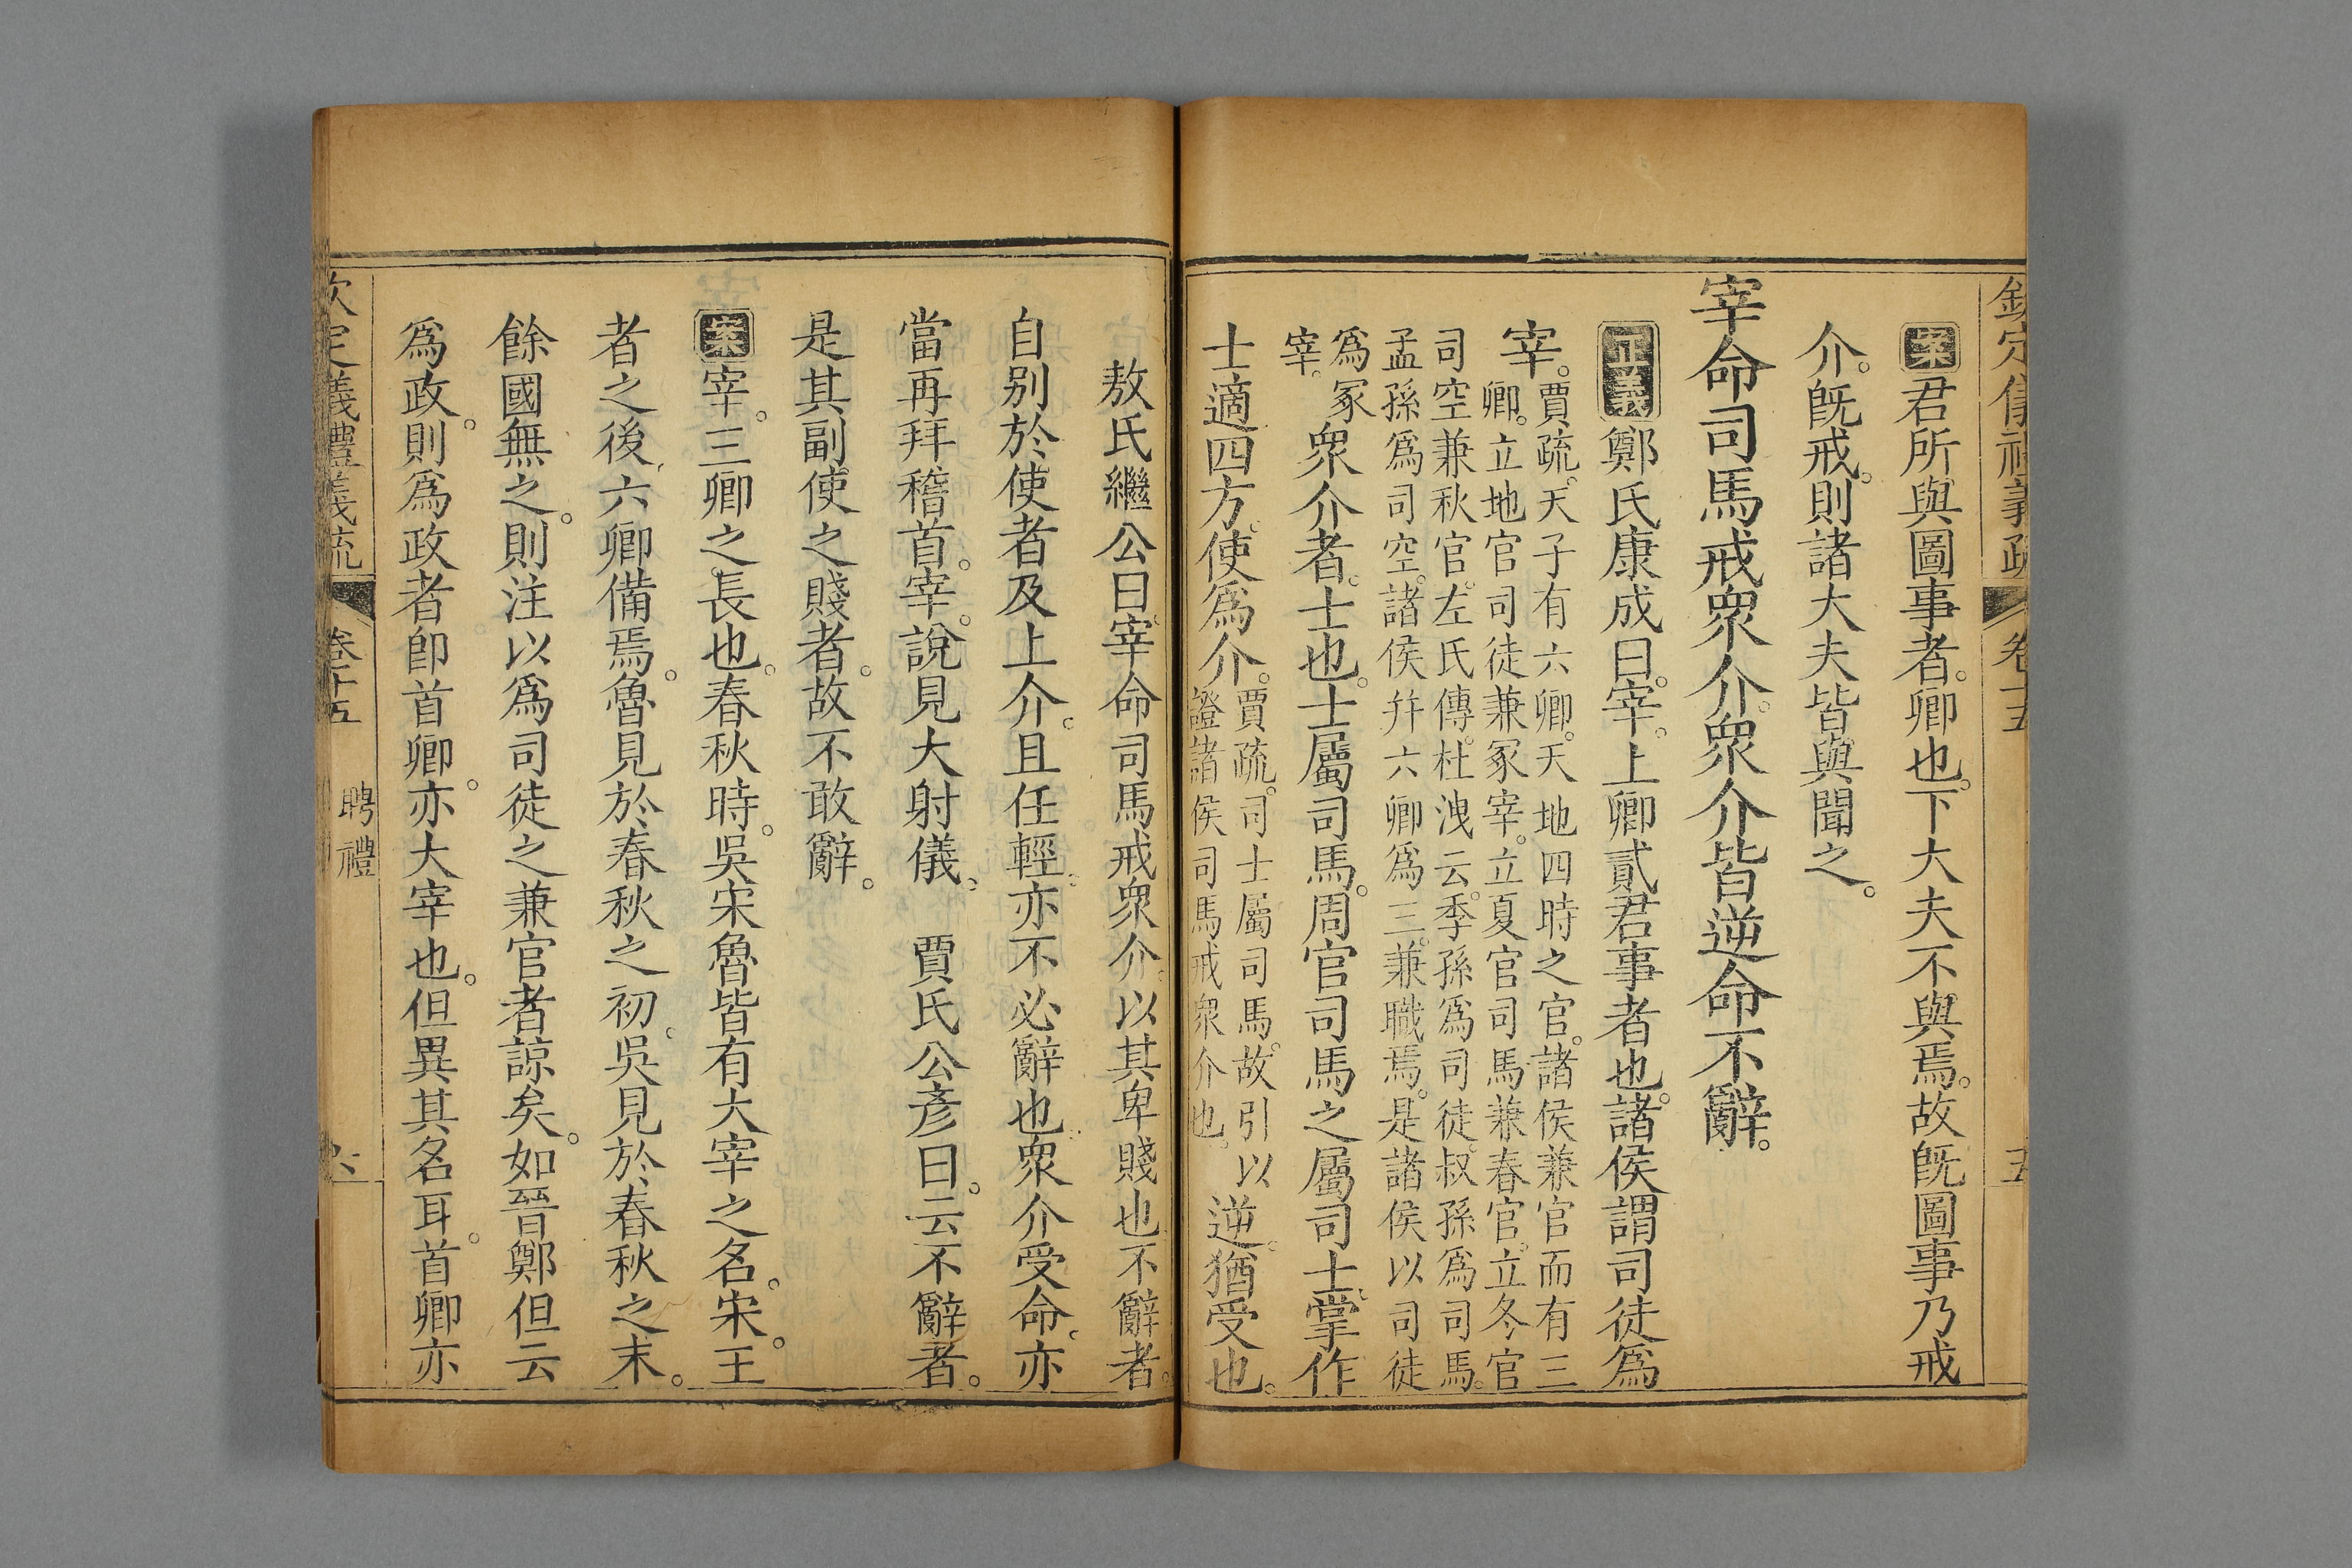 欽定儀禮義疏 卷十五 五
案君所與圖事者。卿也。下大夫不與焉。故旣圖事乃戒
介。旣戒。則諸大夫皆與聞之。
宰命司馬戒衆介。衆介皆逆命不辭。
正義鄭氏康成曰。宰。上卿貳君事者也。諸侯謂司徒爲
宰。賈疏。天子有六卿。天地四時之官。諸侯兼官而有三
卿。立地官司徒兼冢宰。立夏官司馬兼春官。立冬官
司空兼秋官。左氏傳。杜洩云。季孫爲司徒。叔孫爲司馬。
孟孫爲司空。諸侯幷六卿爲三。兼職焉。是諸侯以司徒
爲冢
宰。
衆介者。士也。士屬司馬。周官司馬之屬司士。掌作
士適四方。使爲介。賈疏。司士屬司馬。故引以
證諸侯司馬戒衆介也。
逆。猶受也。
敖氏繼公曰。宰命司馬戒衆介。以其卑賤也。不辭者。
自别於使者及上介。且任輕。亦不必辭也。衆介受命。亦
當再拜稽首。宰。說見大射儀。 賈氏公彥曰。云不辭者。
是其副使之賤者。故不敢辭。
案宰。三卿之長也。春秋時。吳宋魯皆有大宰之名。宋。王
者之後。六卿備焉。魯見於春秋之初。吳見於春秋之末。
餘國無之。則注以爲司徒之兼官者諒矣。如晉鄭但云
爲政。則爲政者卽首卿。亦大宰也。但異其名耳。首卿亦
欽定義禮義疏 卷十五 聘禮 六